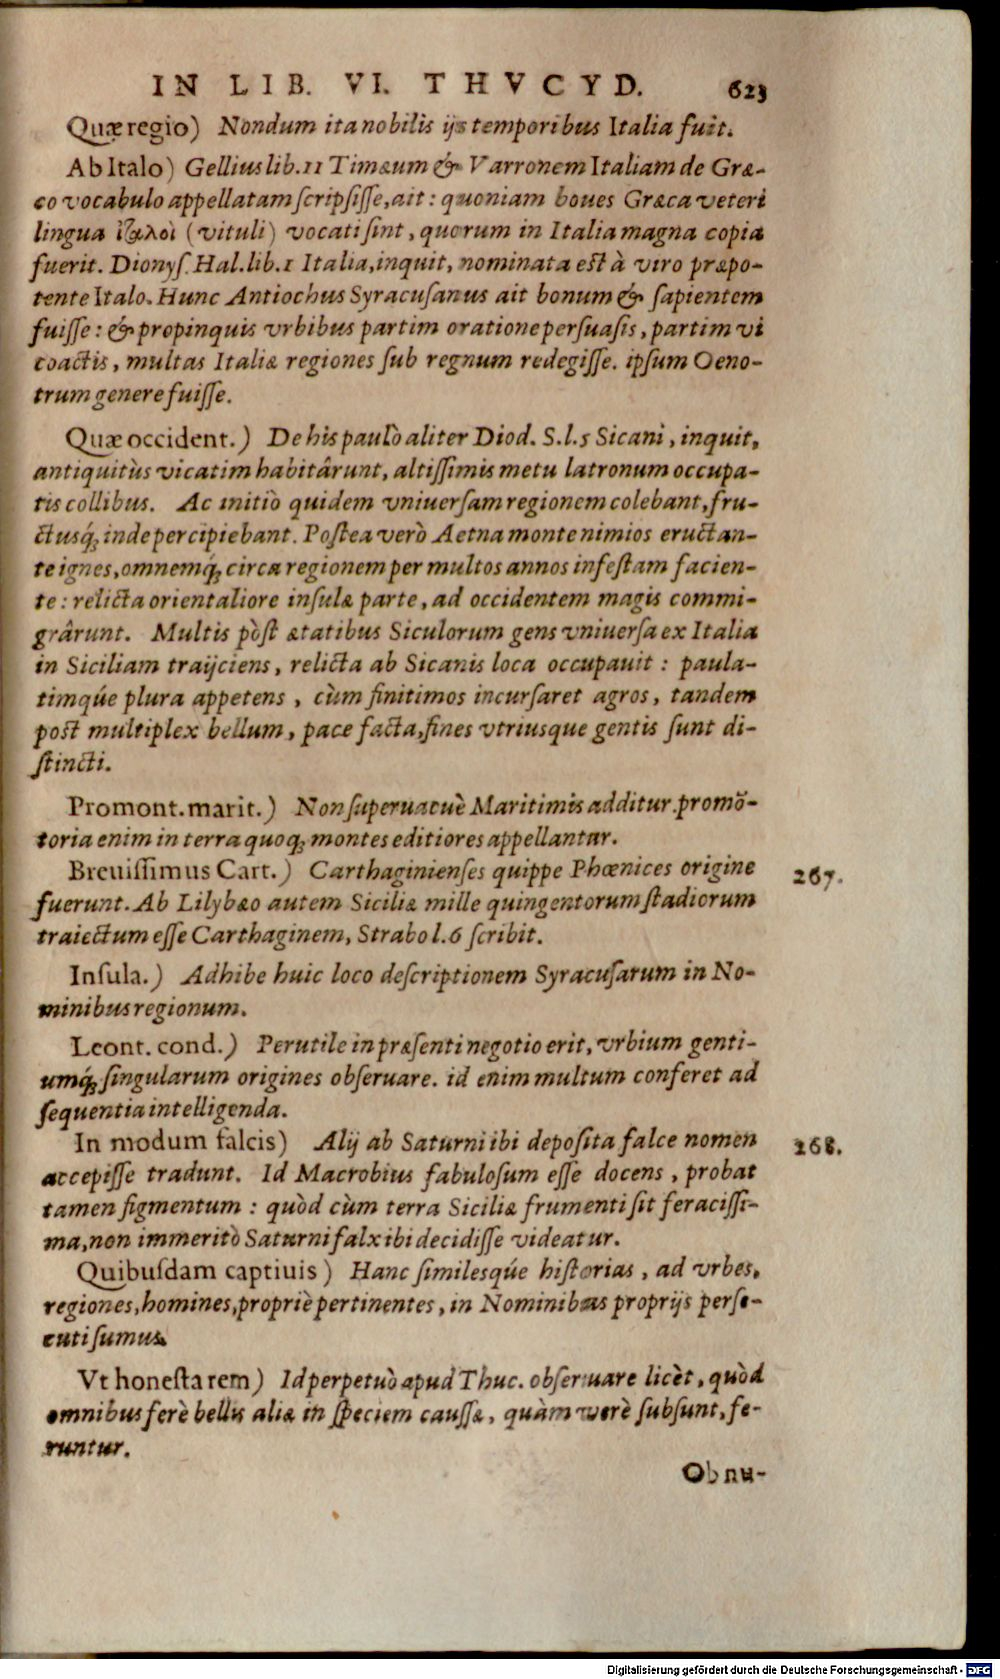 IN LIB. VI. THVCYD. 623
Quæ regio) Nondum ita nobilis ijs temporibus Italia fuit.
Ab Italo) Gellius lib. 11 Timæum & Varronem Italiam de Græ-
co vocabulo appellatam scripsisse, ait: quoniam boues Græca veteri
lingua ἰταλοὶ (vituli) vocati sint, quorum in Italia magna copia
fuerit. Dionys. Hal. lib. 1 Italia, inquit, nominata est à viro præpo-
tente Italo. Hunc Antiochus Syracusanus ait bonum & sapientem
fuisse: & propinquis vrbibus partim oratione persuasis, partim vi
coactis, multas Italiæ regiones sub regnum redegisse. ipsum Oeno-
trum genere fuisse.
Quæ occident.) De his paulò aliter Diod. S. l. 5 Sicani, inquit,
antiquitùs vicatim habitârunt, altissimis metu latronum occupa-
tis collibus. Ac initiò quidem vniuersam regionem colebant, fru-
ctusq́; inde percipiebant. Postea verò Aetna monte nimios eructan-
te ignes, omnemq́; circa regionem per multos annos infestam facien-
te: relicta orientaliore insulæ parte, ad occidentem magis commi-
grârunt. Multis pòst ætatibus Siculorum gens vniuersa ex Italia
in Siciliam traijciens, relicta ab Sicanis loca occupauit: paula-
timqúe plura appetens, cùm finitimos incursaret agros, tandem
post multiplex bellum, pace facta, fines vtriusque gentis sunt di-
stincti.
Promont. marit.) Non superuacuè Maritimis additur. promõ-
toria enim in terra quoq; montes editiores appellantur.
Breuissimus Cart.) Carthaginienses quippe Phœnices origine 267.
fuerunt. Ab Lilybæo autem Siciliæ mille quingentorum stadiorum
traiectum esse Carthaginem, Strabo l. 6 scribit.
Insula.) Adhibe huic loco descriptionem Syracusarum in No-
minibus regionum.
Leont. cond.) Perutile in præsenti negotio erit, vrbium genti-
umq́; singularum origines obseruare. id enim multum conferet ad
sequentia intelligenda.
In modum falcis) Alij ab Saturni ibi deposita falce nomen 268.
accepisse tradunt. Id Macrobius fabulosum esse docens, probat
tamen figmentum: quòd cùm terra Siciliæ frumenti sit feracissi-
ma, non immeritò Saturni falx ibi decidisse videatur.
Quibusdam captiuis) Hanc similesqúe historias, ad vrbes,
regiones, homines, propriè pertinentes, in Nominibus proprijs perse-
cuti sumus.
Vt honesta rem) Id perpetuò apud Thuc. obseruare licèt, quòd
omnibus ferè bellis aliæ in speciem caussæ, quàm verè subsunt, fe-
runtur.
Obnu-
Digitalisierung gefördert durch die Deutsche Forschungsgemeinschaft - DFG